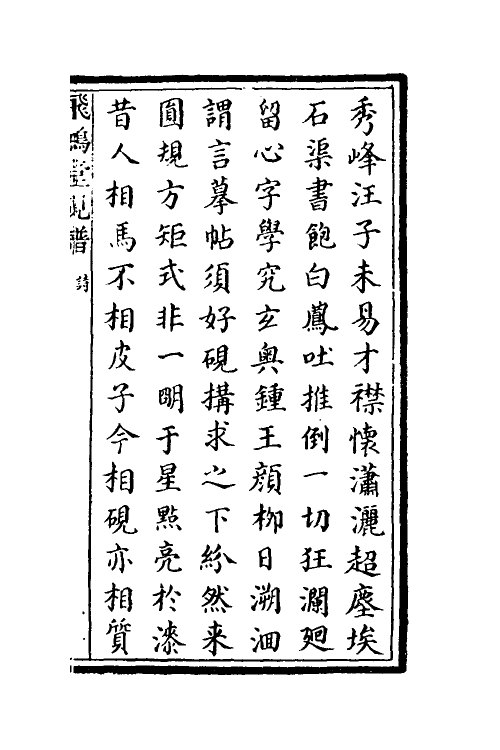 秀峰汪子未易才襟懷瀟灑超塵埃
石渠書飽白鳳吐推倒一切狂瀾廻
留心字學究玄奥鍾王顔柳日溯洄
謂言摹帖須好硯搆求之下紛然来
圓規方矩式非一明于星㸃亮於漆
昔人相馬不相皮子今相硯亦相質
飛鴻堂硯譜 詩